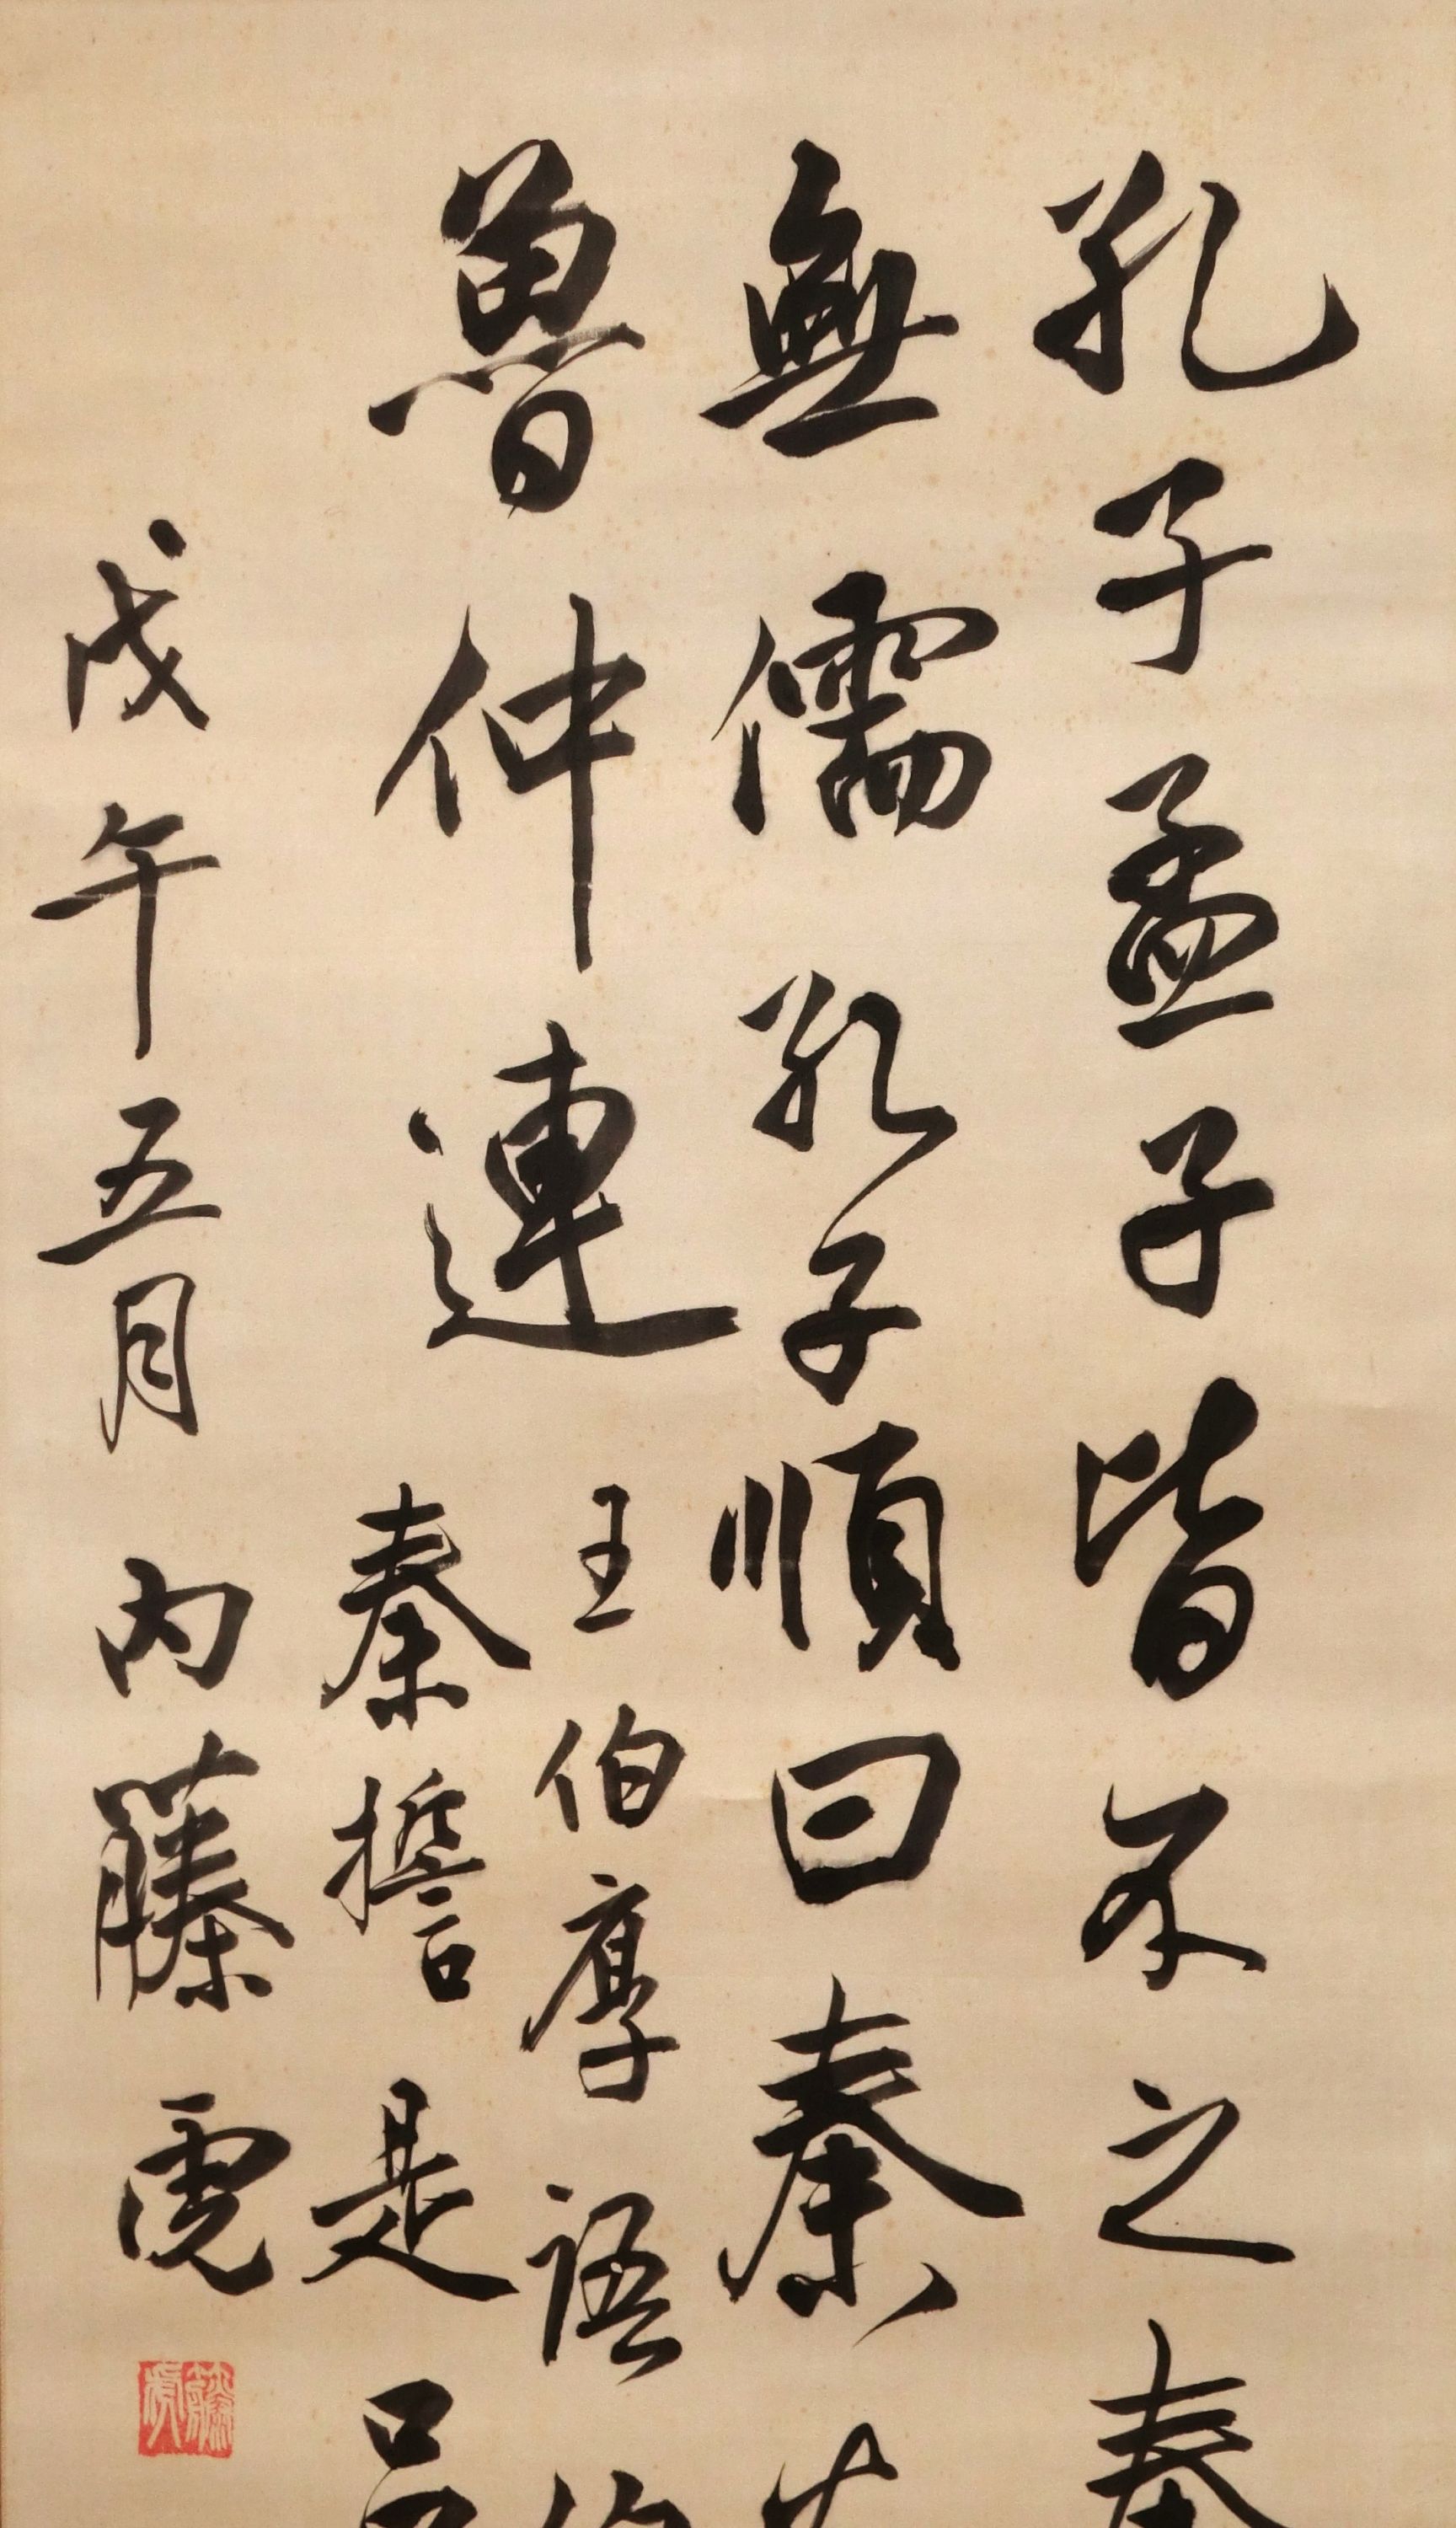 孔子孟子皆不之秦
無儒孔子順曰秦
魯仲連
王伯厚語
秦誓是
戊午五月 內藤虎
藤虎